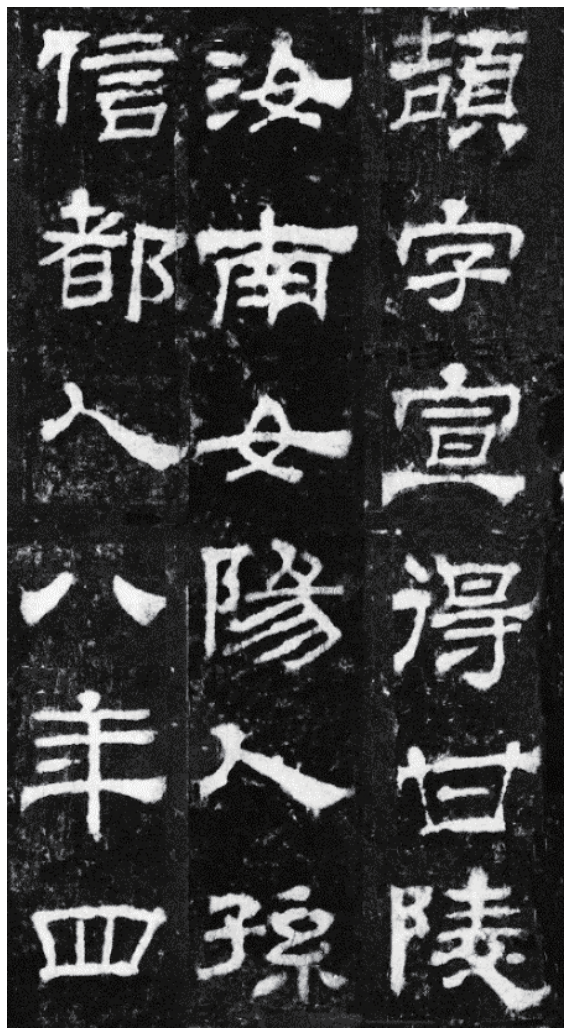 頡字宣得甘陵
汝南女陽人孫
信都人八年四